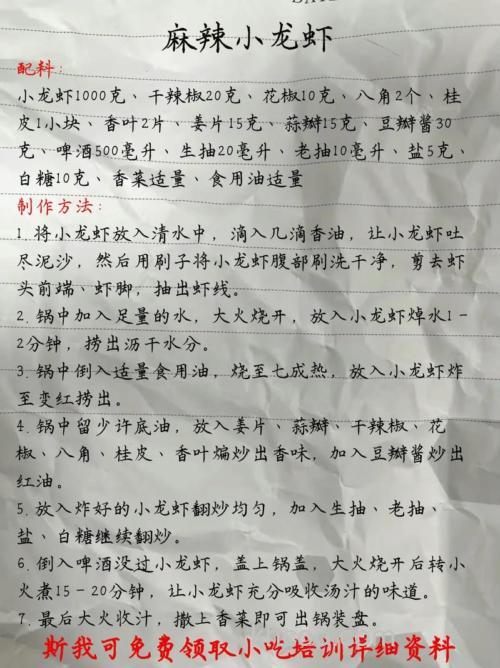 麻辣小龙虾
配料:
小龙虾1000克、干辣椒20克、花椒10克、八角2个、桂
皮1小块、香叶2片、姜片15克、蒜瓣15克、豆瓣酱30
克、啤酒500毫升、生抽20毫升、老抽10毫升、盐5克、
白糖10克、香菜适量、食用油适量
制作方法:
1. 将小龙虾放入清水中，滴入几滴香油，让小龙虾吐
尽泥沙，然后用刷子将小龙虾腹部刷洗干净，剪去虾
头前端、虾脚，抽出虾线。
2. 锅中加入足量的水，大火烧开，放入小龙虾焯水1-
2分钟，捞出沥干水分。
3. 锅中倒入适量食用油，烧至七成热，放入小龙虾炸
至变红捞出。
4. 锅中留少许底油，放入姜片、蒜瓣、干辣椒、花
椒、八角、桂皮、香叶煸炒出香味，加入豆瓣酱炒出
红油。
5. 放入炸好的小龙虾翻炒均匀，加入生抽、老抽、
盐、白糖继续翻炒。
6. 倒入啤酒没过小龙虾，盖上锅盖，大火烧开后转小
火煮15-20分钟，让小龙虾充分吸收汤汁的味道。
7. 最后大火收汁，撒上香菜即可出锅装盘。
斯我可免费领取小吃培训详细资料